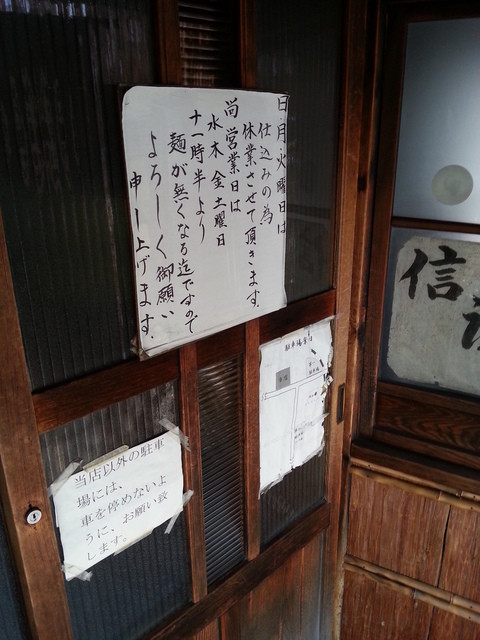 日・月・火曜日は
仕込みの為
休業させて頂きます。
尚営業日は
水木金土曜日
十一時半より
麺が無くなる迄ですので
よろしく御願い
申し上げます。
当店以外の駐車
場には、
車を停めないよ
うに、お願い致
します。
駐車場案内
信